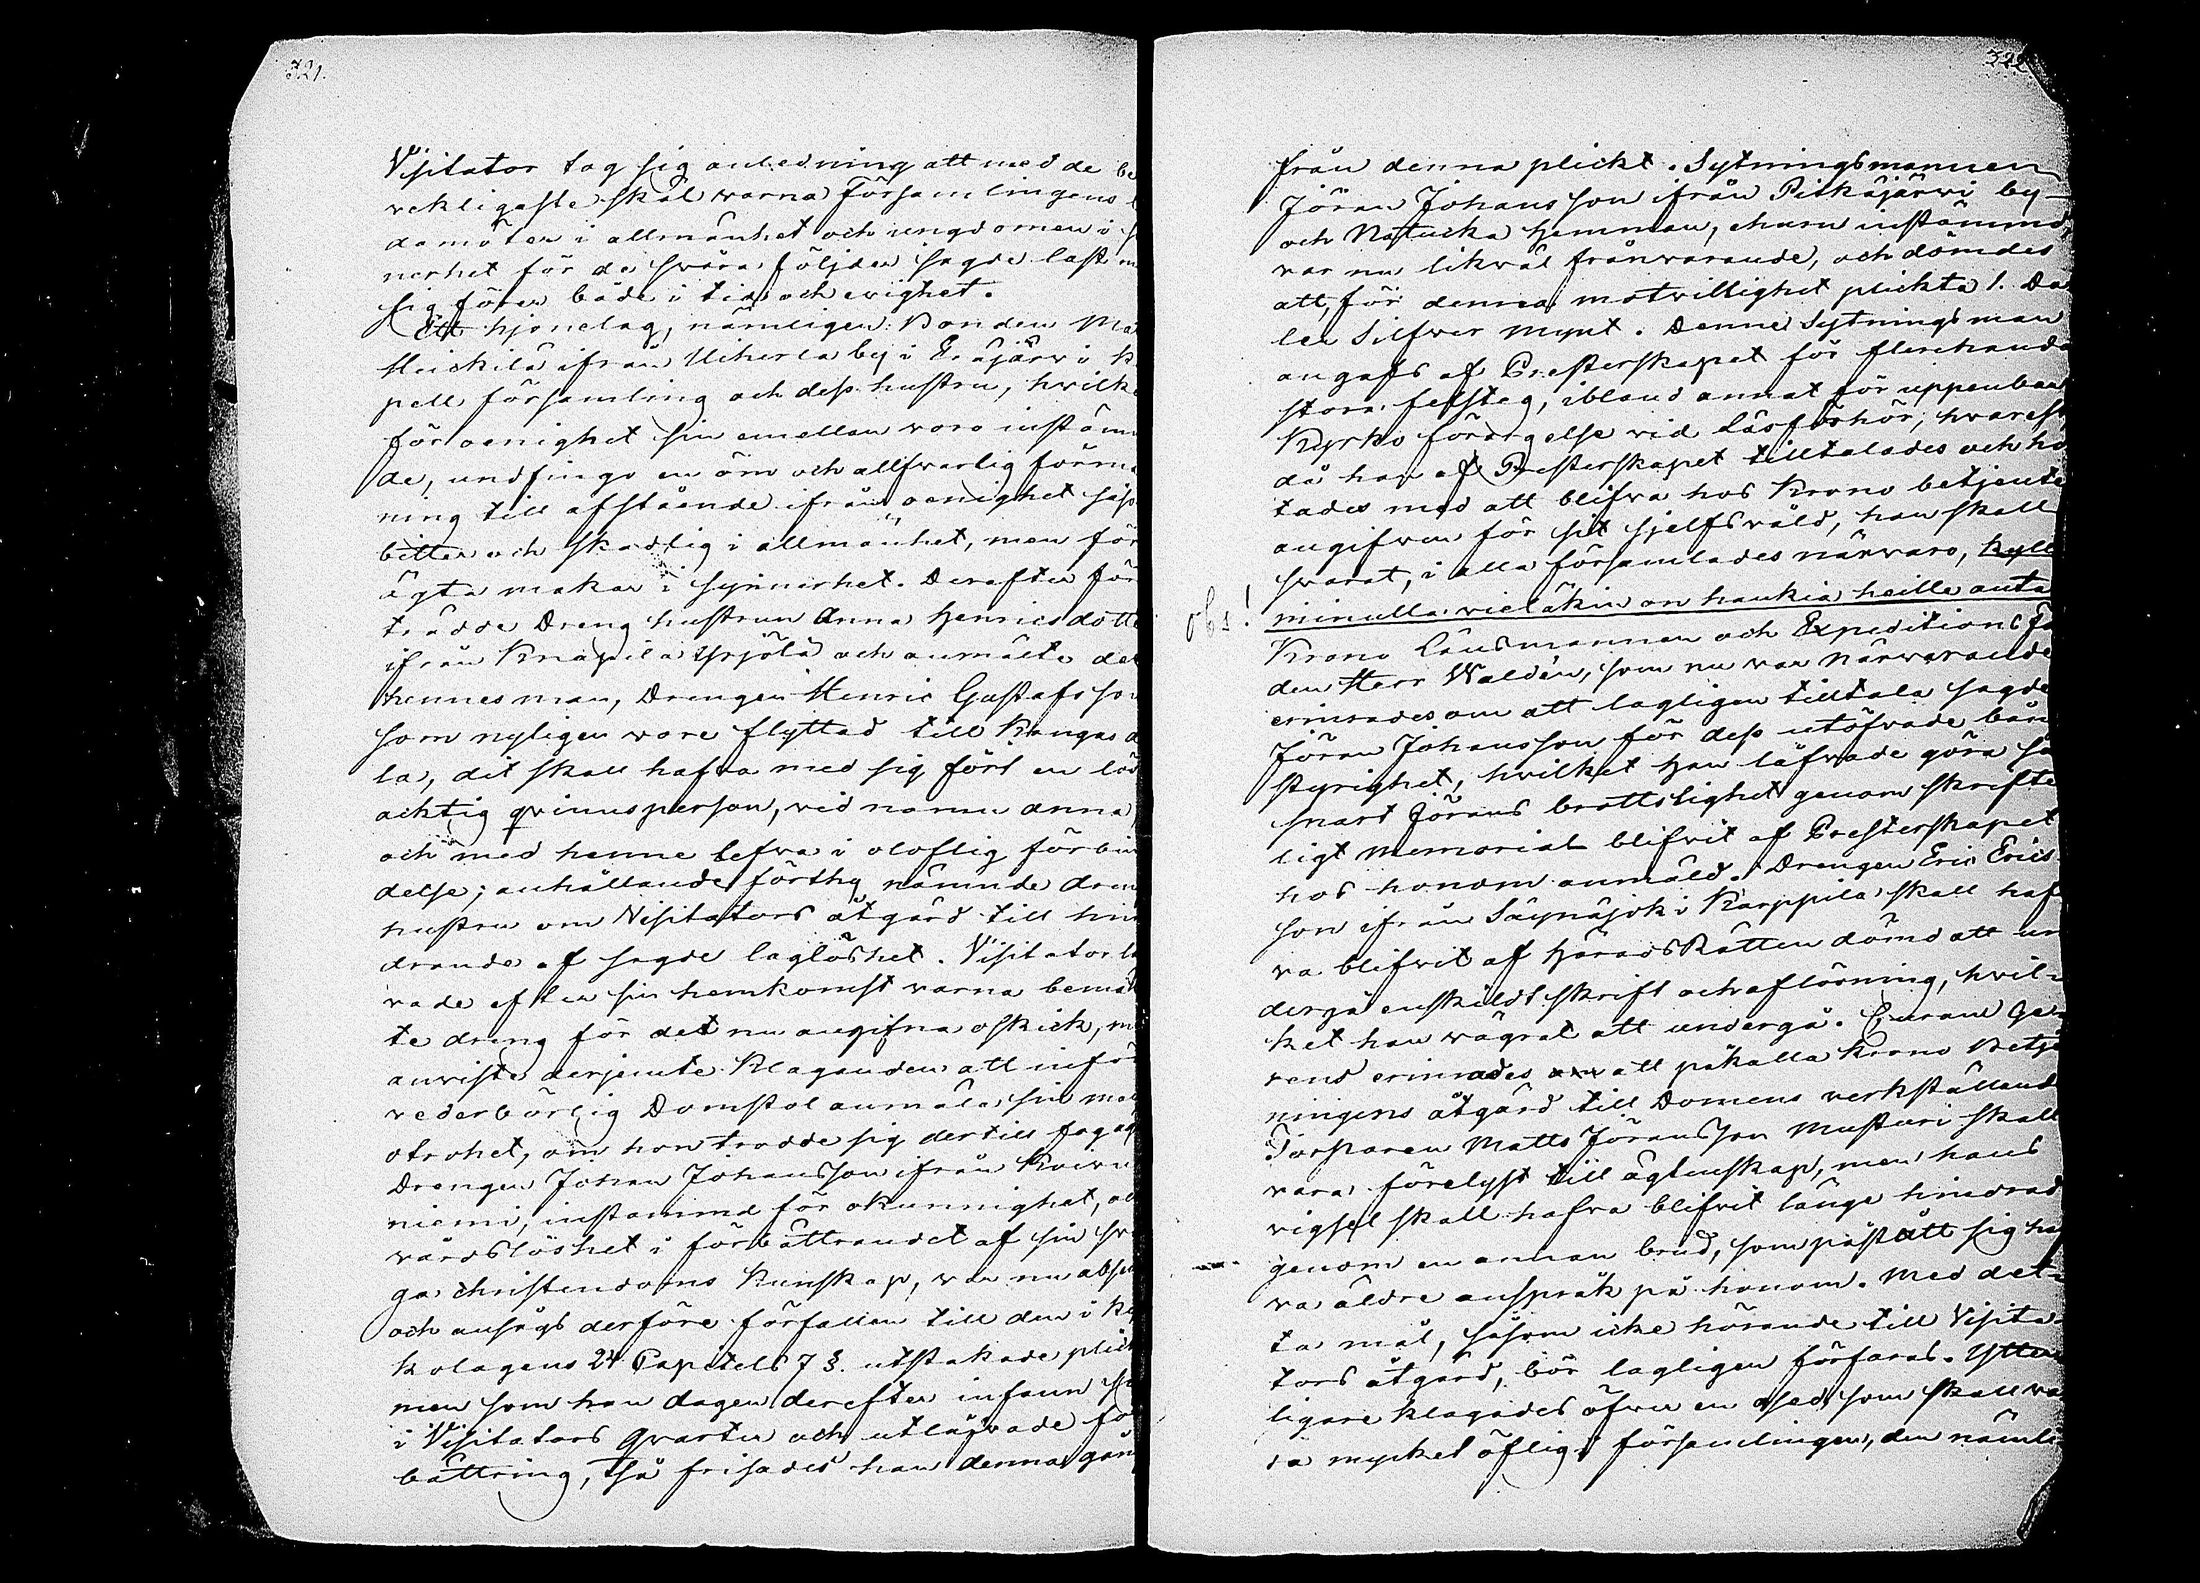 321.
Visitator tog sig anledning att med de be
vekligaste skäl varna församlingens l
damöter i allmänhet och ungdomen i s
nerhet för de svåra följder sagde last m
sig förer både i tid och evighet.
Ett hjonelag, nämligen Bonden Ma
Heickilä ifrån Uiherla by i Eräjärvi k
pell församling och dess hustru, hvilke
för oenighet sin emellan voro instäm
de, undfingo en öm och allfvarlig förma
ning till afstående ifrån oenighet såso
bitter och skadlig i allmänhet, men för
ägta makar i synnerhet. Derefter för
trädde Dreng hustrun Anna Henricsdotte
ifrån Knapila Yrjölä och anmälte det
hennes man, Drengen Henric Gustafsson
som nyligen vore flyttad till Kangasa
la, dit skall hafva med sig fört en lös
acktig qvinnsperson, vid namn Anna
och med henne lefva i oloflig förbin
delse; anhållande förthy nämnde dren
hustru om Visitators åtgärd till hin
drande af sagde laglöshet. Visitator lo
vade efter sin hemkomst varna bemäl
te dreng för det nu angifna oskick, m
anviste derjemte Klaganden att inför
vederbörlig Domstol anmäla sin mans
otrohet, om hon trodde sig dertill fog äg
Drengen Johan Johansson ifrån Koivu
niemi, instämmd för okunnighet, oc
vårdslöshet i förbättrandet af sin sva
ga christendoms kunskap, var nu abse
och ansågs derföre förfallen till den i Ky
kolagens 24 Capitels 7 §. utstakade plick
men som han dagen derefter infann sig
i Visitators qvarter och utlofvade för
bättring, så frisades han denna gån
322
från denna plickt. Sytningsmannen
Jöran Johansson ifrån Pitkäjärvi by
och Natucka Hemman, ehuru instämmd,
var nu likväl frånvarande, och dömdes
att, för denna motvillighet plickta 1. Da
ler Silfver mynt. Denne Sytningsman
angafs af Presterskapet för flerehanda
stora felsteg, ibland annat för uppenbar
Kyrko förargelse vid Läsförhör, hvarest
då han af Presterskapet tilltalades och ho
tades med att blifva hos Krono betjente
angifven för sit sjelfsvåld, han skall
svarat, i alla församlades närvaro, kyll
obs! minulla vieläkin on haukia heille anta
Krono Länsmannen och Expeditions Fo
den Herr Waldén, som nu var närvarande
erinrades om att lagligen tilltala sagde
Jöran Johansson för dess utöfvade bån
styrighet, hvilket han låfvade göra så
snart Jörans brottslighet genom skrifte
ligt memorial blifvit af Presterskapet
hos honom anmäld. Drengen Eric Erics-
son ifrån Säynäjoki Karppila skall haf
va blifvit af HäradsRätten dömd att un
dergå enskildt skrift och aflösning, hvil-
ket han vägrat att undergå.
rend erinrades att påkalla Krono Betje
ningens åtgärd till Domens verkställand
Torparen Matts Jöransson Musturi skall
vara förelyst till ägtenskap, men hans
vigsel skall hafva blifvit länge hindrad
genom en annan brud, som påstått sig ha
va äldre anspråk på honom. Med det-
ta mål, såsom icke hörande till Visita
tors åtgärd, bör lagligen förfaras. Ytter
ligare klagades öfver en osed, som skall va
ra mycket öflig i församlingen, den nämli